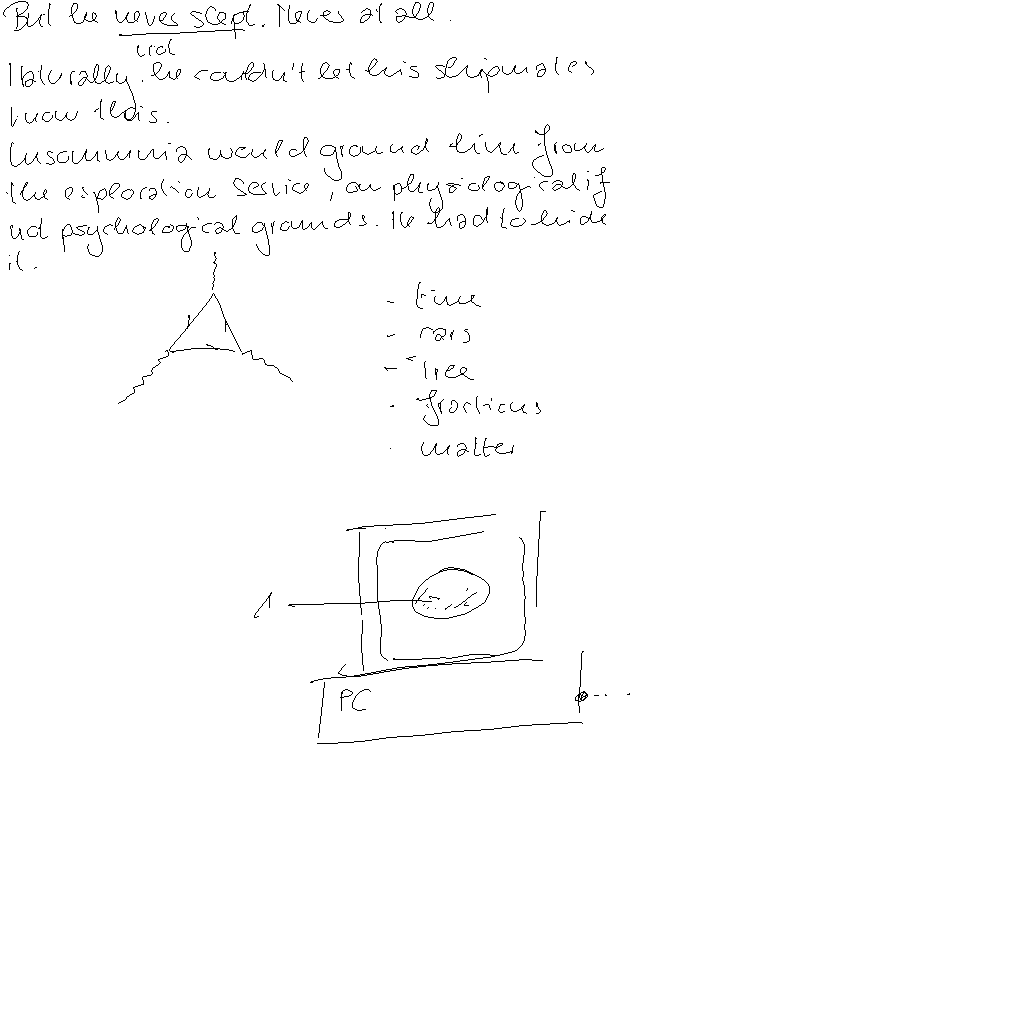 But he never slept. Never at all.
Naturally, he couldn't let his shipmates
know this.
Insomnia would ground him from
the exploration service, on physiological if
not psychological grounds. He had to hide
it.
- time
- cars
- tree
- fractions
- matter
1
PC